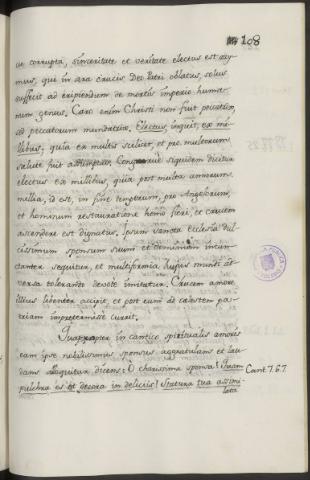 108
ue corrupta, sinceritate et veritate electus est ag-
nus, qui in ara crucis Deo Patri oblatus, solus
suffecit ad eripiendum de mortis imperio huma-
num genus. Caro enim Christi non fuit
ad peccatorum mundationem, Electus, inquit, ex mi-
llibus, quia ex multis scilicet, et pro multorum
salute fuit assumptus. Congrue siquidem dicitur
electus ex millibus, quia post multa annorum
millia, id est, in fine temporum, pro Angelorum,
et hominum restauratione homo fieri, et crucem
ascendere est dignatus. Ipsum sancta Ecclesia dul-
cissimum sponsum suum et dominum incun-
tanter sequitur, et multiformia hujus mundi ad-
versa tolerando devote imitatur. Crucem amore
illius libenter accipit, et post eum ad celestem pa-
triam impretermisse currit.
Quapropter in cantico spiritualis amoris
eam ipse nobilissimus sponsus aggratulans et lau-
dans alloquitur dicens: O charissima sponsa! Quam
pulchra es et decora in deliciis! Statura tua assimi-
lata
Cant. 7. 6. 7.